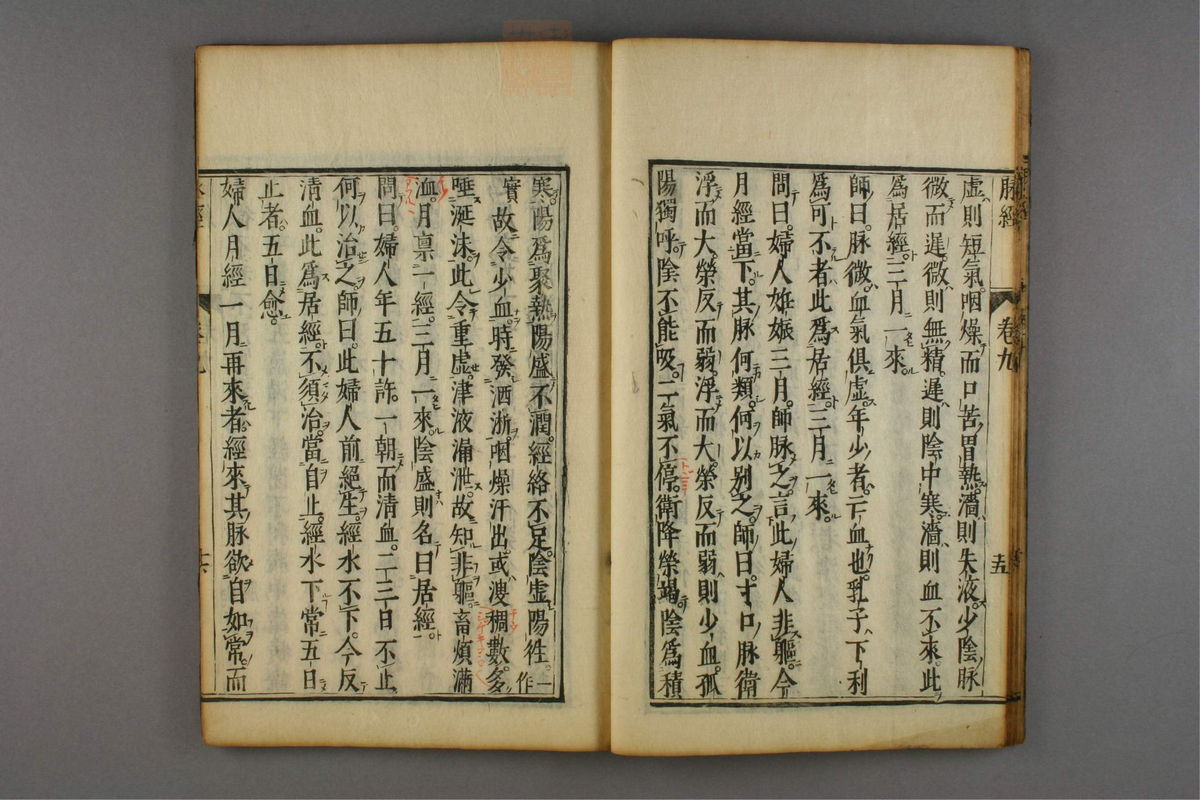 脉經
卷九
十五
虛則短氣咽燥而口苦胃熱濇則失液少陰脉
微而遲微則無精遲則陰中寒濇則血不來此
爲居經三月一來
師曰脉微血氣俱虛年少者亡血也乳子下利
爲可不者此爲居經三月一來
問曰婦人姙娠三月師脉之言此婦人非軀今
月經當下其脉何類何以別之師曰寸口脉衛
浮而大榮反而弱浮而大榮反而弱則少血孤
陽獨呼陰不能吸二氣不停衛降榮竭陰爲積
寒陽爲聚熱陽盛不潤經絡不足陰虛陽徃一作
實故令少血時發洒淅咽燥汗出或溲稠數多
唾涎沫此令重虛津液漏泄故知非軀畜煩滿
洫月禀一經三月一來陰盛則名曰居經
問曰婦人年五十許一朝而清血二三日不止
何以治之師曰此婦人前絕生經水不下今反
清血此爲居經不須治當自止經水下常五日
止者五日愈
婦人月經一月再來者經來其脉欲自如常而